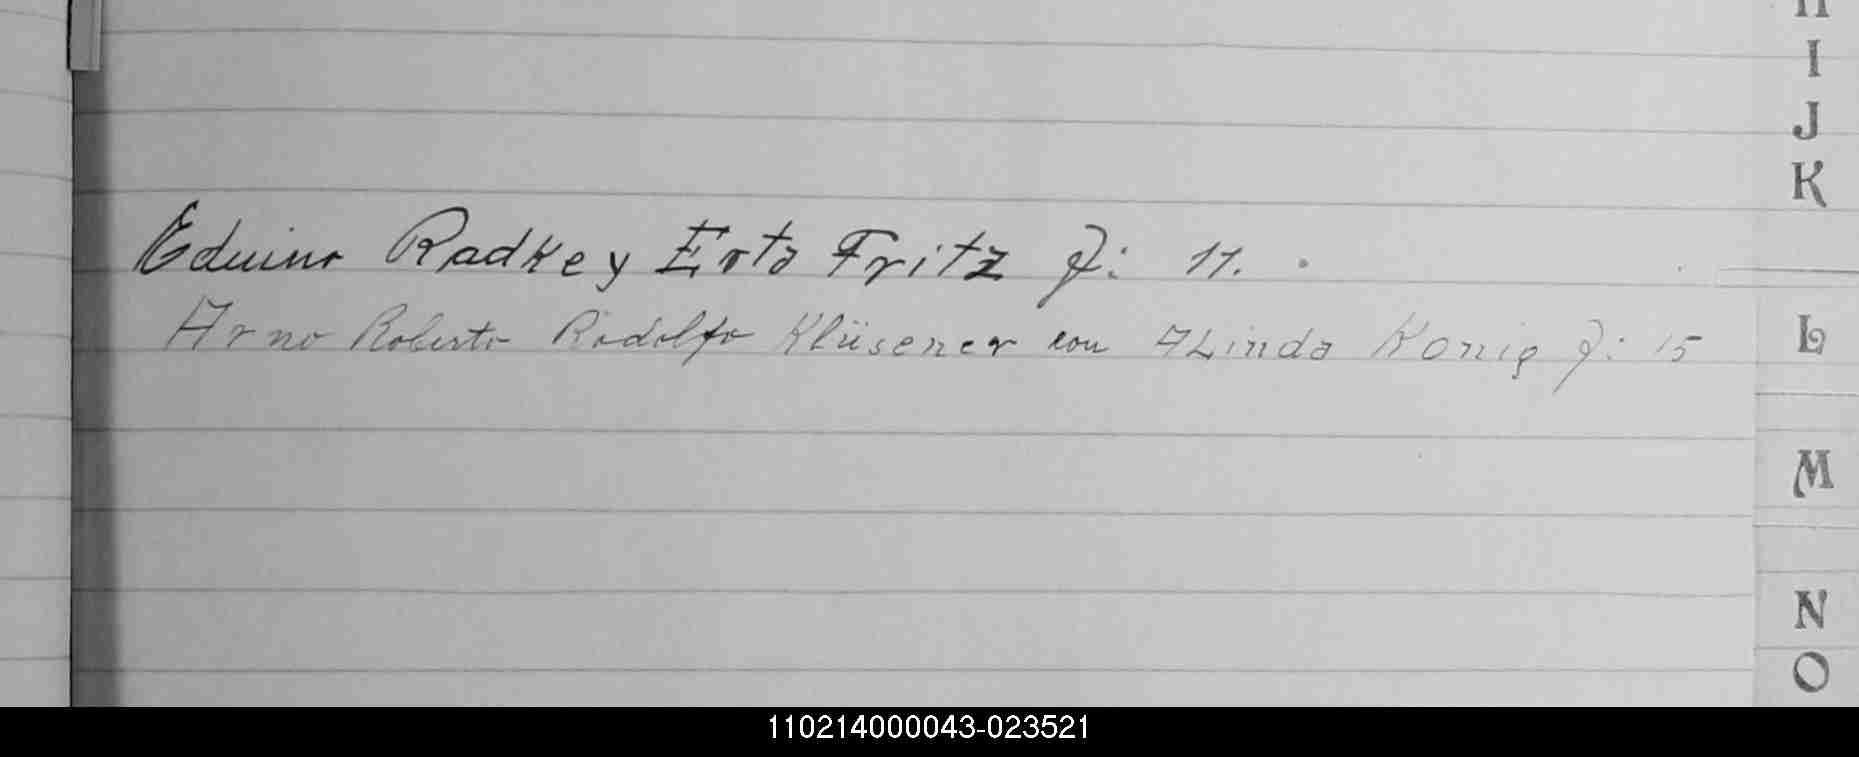 H
I
J
K
Eduino Radke y Erta Fritz f: 11.
Arno Roberto Rodolfo Klüsener con Alinda Konig f: 15
L
M
N
O
110214000043-023521